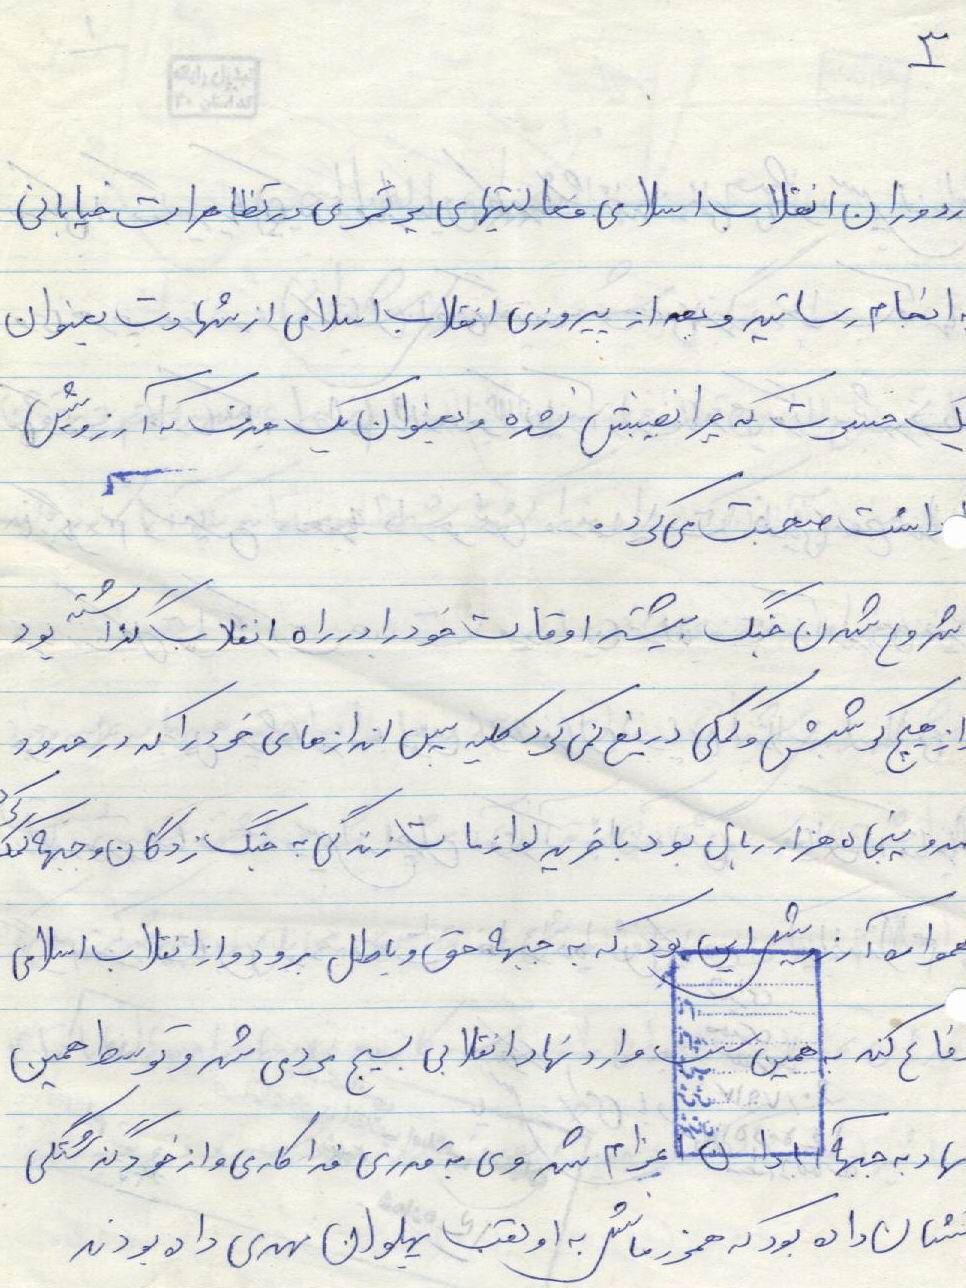 ۳
در دوران انقلاب اسلامی فعالیتهای پر ثمری در تظاهرات خیابانی
به انجام رسانید و بعد از پیروزی انقلاب اسلامی از شهادت بعنوان
یک حسرت که چرا نصیبش نشده و بعنوان یک هدف که آرزویش را
داشت صحبت می کرد .
شروع شدن جنگ بیشتر اوقات خود را در راه انقلاب گذاشته بود
از هیچ کوشش و کمکی دریغ نمی کرد کلیه پس اندازهای خود را که در حدود
صد و پنجاه هزار ریال بود با خرید لوازمات زندگی به جنگ زدگان و جبهه کمک کرد
همواره آرزویش این بود که به جبهه حق و باطل برود و از انقلاب اسلامی
دفاع کند به همین سبب وارد نهاد انقلابی بسیج مردمی شد و توسط همین
نهاد به جبهه آبادان اعزام شد وی به قدری فداکاری و از خود گذشتگی
نشان داده بود که همرزمانش به او لقب پهلوان مهدی داده بودند